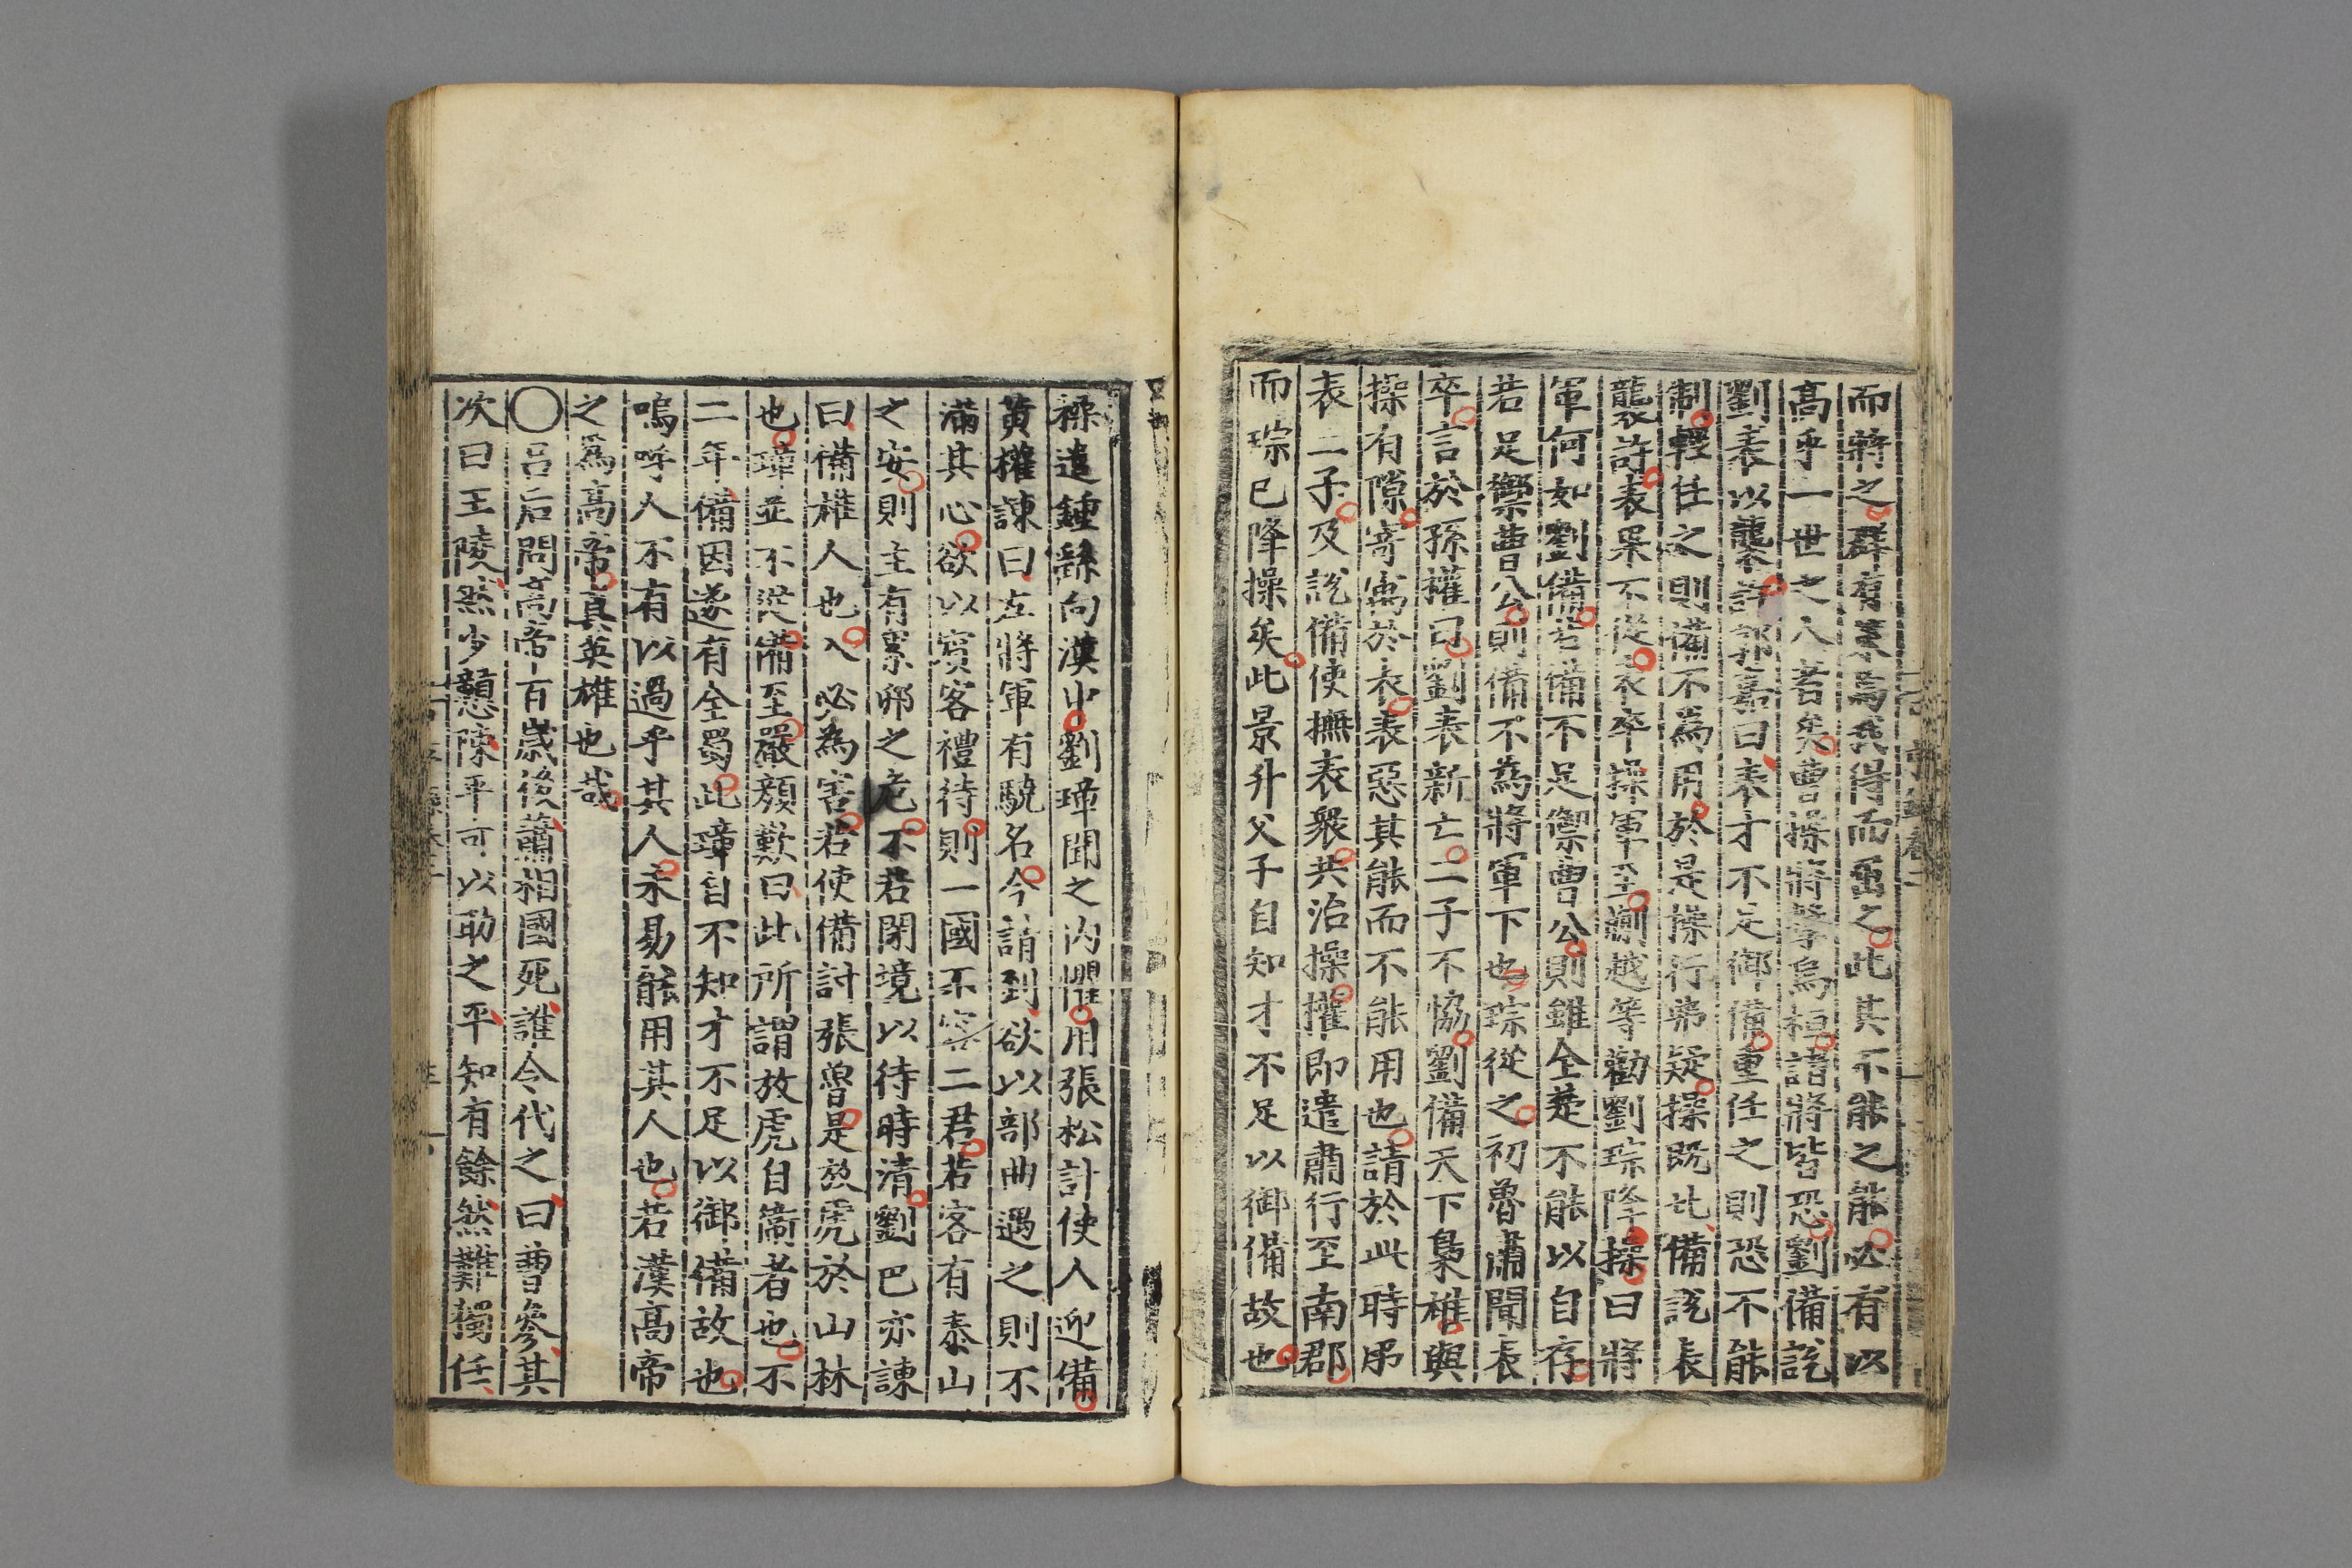 而將之群有業爲我得而
之此其不能之能必有以
高乎一世之人者矣曹操將擊烏桓諸將皆恐劉備説
劉表以襲許郭嘉曰表才不足御備重任之則恐不能
制輕任之則備不爲用於是操行弗疑操既北備説表
襲許表果不從表卒操軍至蒯越等勸劉琮降操曰將
軍何如劉備若備不足禦曹公則雖全楚不能以自存
若足禦曹公則備不為將軍下也琮從之初魯肅聞表
卒言於孫權曰劉表新亡二子不恊劉備天下梟雄與
操有隙寄寓於表表惡其能而不能用也請於此時弔
表二子及説備使撫表衆共治操權即遣肅行至南郡
而琮已降操矣此景升父子自知才不足以御備故也
操遣鍾繇向漢中劉璋聞之内懼用張松計使人迎備
黃權諫曰左將軍有驍名今請到欲以部曲遇之則不
滿其心欲以賓客禮待則一國不容二君若客有泰山
之安則主有累卵之危不若閉境以待時清劉巴亦諫
曰備雄人也入必為害若使備討張魯是放虎於山林
也璋並不從備至嚴顔歎曰此所謂放虎自衛者也不
二年備因遂有全蜀此璋自不知才不足以御備故也
嗚呼人不有以過乎其人未易能用其人也若漢高帝
之爲高帝真英雄也哉
○呂后問高帝百歲後蕭相國死誰令代之曰曹參其
次曰王陵然少戇陳平可以助之平知有餘然難獨任